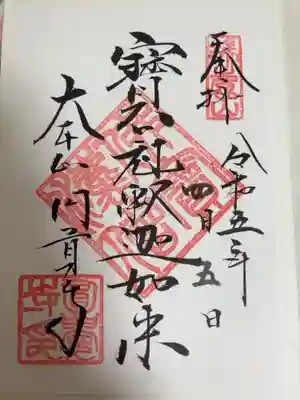 奉拝
令和五年
四月五日
寳冠釈迦如来
大本山円覚寺